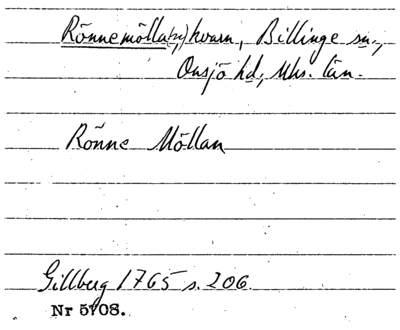 Rönnemölla(n,) kvarn, Billinge sn.,
Onsjö hd, Mhs. län.
Rönne Möllan
Gillberg 1765 s. 206.
Nr 5708.